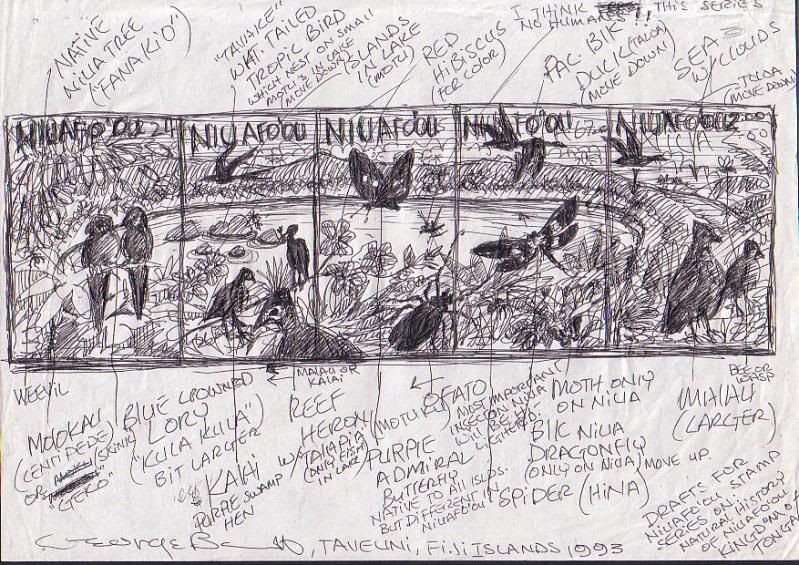 NATIVE
NIUA TREE
("FANAKIO")
"TAVAKE"
WHT. TAILED
TROPIC BIRD
WHICH NEST ON SMALL
MOTU'S IN LAKE
(MOVE DOWN)
ISLANDS
IN LAKE
(MOTU)
RED
HIBISCUS
(FOR COLOR)
I THINK THIS SERIES
NO HUMANS!!
PAC. BLK
DUCK (TALOA)
(MOVE DOWN)
SEA
W/CLOUDS
TOLOA
(MOVE DOWN)
NIUAFO'OU
NIUAFO'OU
NIUAFO'OU
NIUAFO'OU
NIUAFO'OU
WEEVIL
MOOKALI
(CENTIPEDE)
OR (SKINK)
"GEKO"
BLUE CROWNED
LORY
("KULA KULA")
BIT LARGER
KALAI
PURPLE SWAMP
HEN
MALAU OR
KALAI
REEF
HERON (MOTUKU)
W/TALAPIA
(ONLY FISH
IN LAKE)
PURPLE
ADMIRAL
BUTTERFLY
NATIVE TO ALL ISLDS.
BUT DIFFERENT IN
NIUAFO'OU
OFATO
MOST IMPORTANT
INSECT ON NIUA
WILL BE HI-
LIGHTERED.
MOTH ONLY
ON NIUA
BLK NIUA
DRAGONFLY
(ONLY ON NIUA) MOVE UP.
SPIDER (HINA)
BEE OR
WASP
MALAU
(LARGER)
DRAFTS FOR
NIUAFO'OU STAMP
SERIES ON
NATURAL HISTORY
OF NIUAFO'OU
KINGDOM OF
TONGA
George, TAVEUNI, FIJI ISLANDS 1993